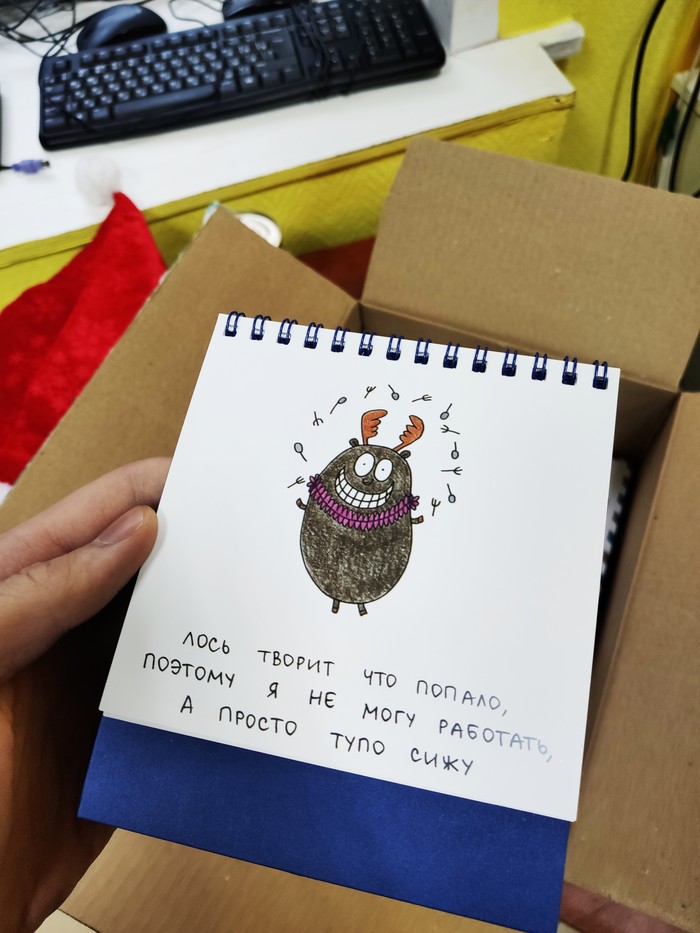 ЛОСЬ ТВОРИТ ЧТО ПОПАЛО,
ПОЭТОМУ Я НЕ МОГУ РАБОТАТЬ,
А ПРОСТО ТУПО СИЖУ